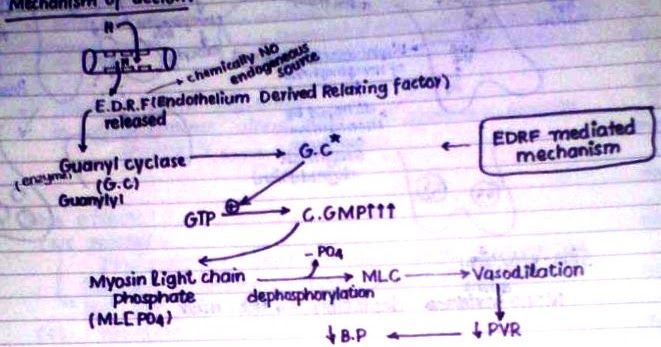 Mechanism of action
N
R
chemically NO
endogeneous
source
E.D.R.F (Endothelium Derived Relaxing factor)
released
EDRF mediated
mechanism
Guanyl cyclase
G.C*
(enzyme)
(G.C)
Guanylyl
GTP
⊕
C.GMP↑↑↑
-PO4
Myosin light chain
phosphate
(MLC PO4)
dephosphorylation
MLC
Vasodilation
↓ PVR
↓ B.P